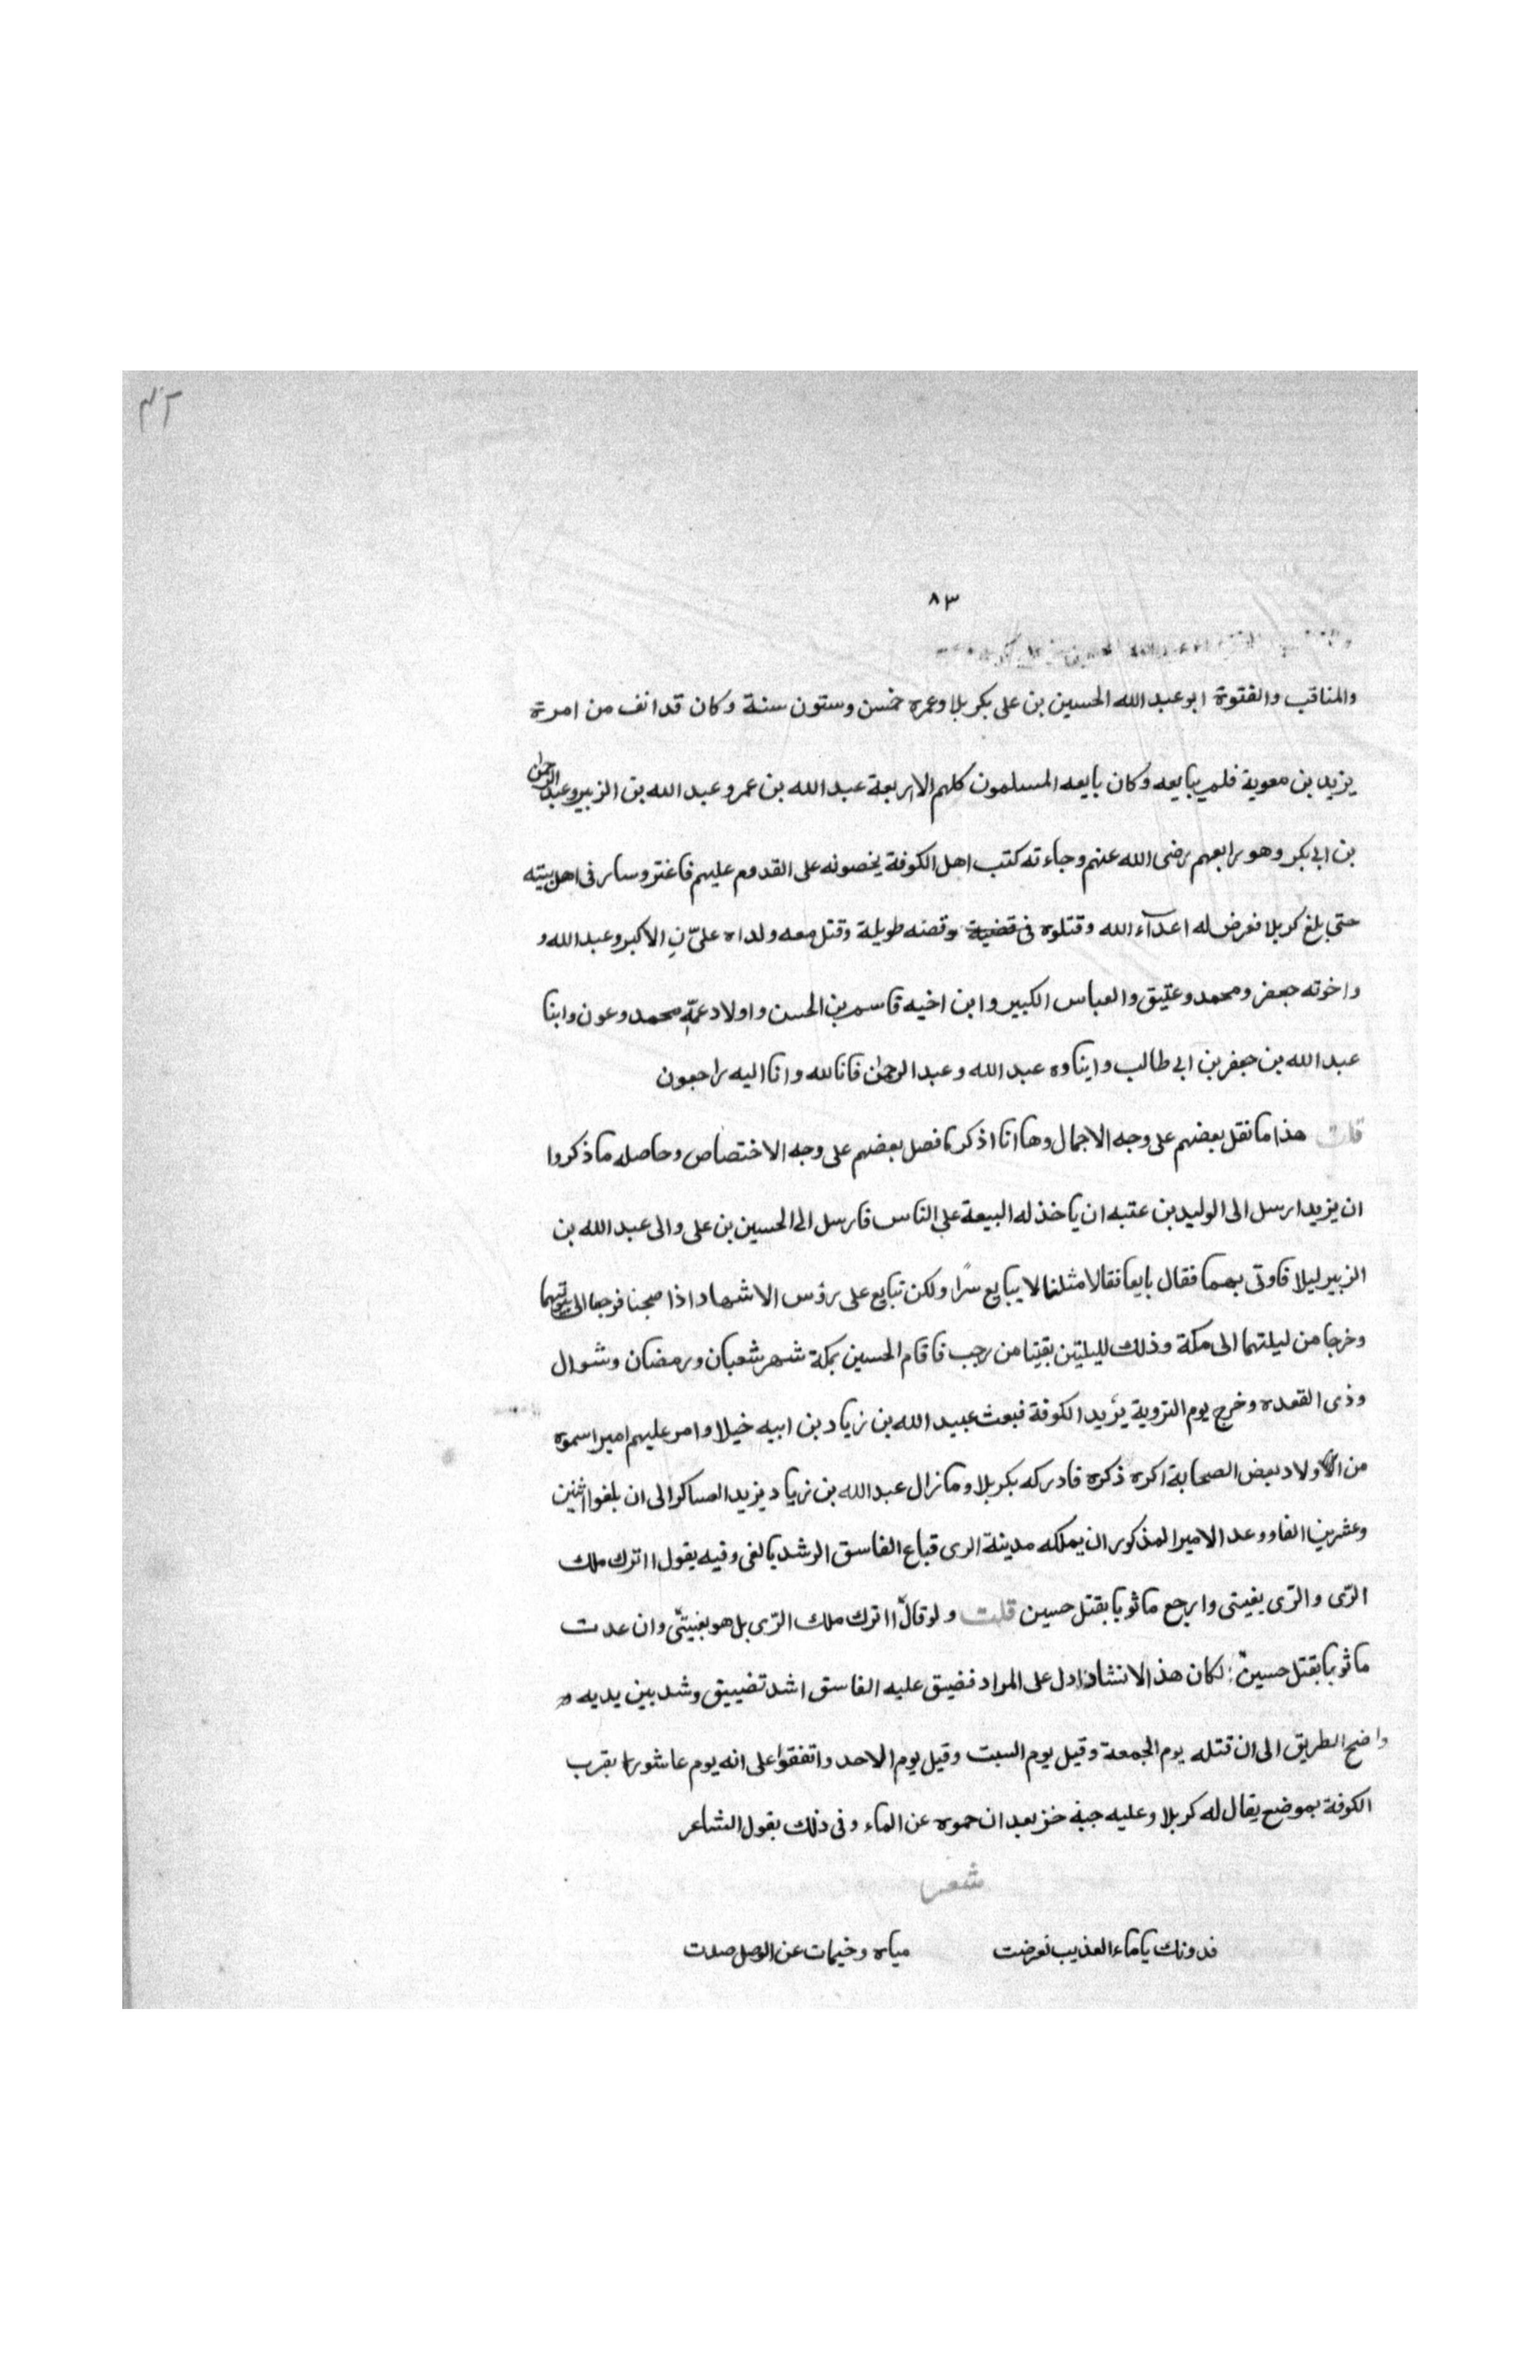 ٤٢
٨٣
والمناقب والفتوة ابو عبد الله الحسين بن على بكربلا وعمره خمس وستون سنة وكان قد انف من امرة
يزيد بن معوية فلم يبايعه وكان بايعه المسلمون كلهم الا اربعة عبد الله بن عمر وعبد الله بن الزبير وعبد الرحمن
بن ابى بكر وهو رابعهم رضى الله عنهم وجاءته كتب اهل الكوفة يخصونه على القدوم عليهم فاغتر وسار فى اهل بيته
حتى بلغ كربلا فعرض له اعدآء الله وقتلوه فى قضية وقصته طويلة وقتل معه ولداه علىّ نِ الاكبر وعبد الله و
واخوته جعفر ومحمد وعتيق والعباس الكبير وابن اخيه قاسم بن الحسن واولاد عمّه محمد وعون وابنا
عبد الله بن جعفر بن ابى طالب وابناوه عبد الله وعبد الرحمن فانا لله وانا اليه راجعون
قلت هذا ما نقل بعضهم على وجه الاجمال وها انا اذكر ما فصل بعضهم على وجه الاختصاص وحاصله ما ذكروا
ان يزيد ارسل الى الوليد بن عتبه ان ياخذ له البيعة على الناس فارسل الى الحسين بن على والى عبد الله بن
الزبير ليلا فاوتى بهما فقال بايعا فقالا مثلنا لا يبايع سرًا ولكن نبايع على رؤس الاشهاد اذا صبحنا فرجعا الى بيوتهما
وخرجا من ليلتهما الى مكة وذلك لليلتين بقيتا من رجب فاقام الحسين بمكة شهر شعبان ورمضان وشوال
وذى القعده وخرج يوم التروية يريد الكوفة فبعث عبيد الله بن زياد بن ابيه خيلا وامر عليهم اميرا سموه
من الاولاد بعض الصحابة اكره ذكره فادركه بكربلا وما زال عبد الله بن زياد يزيد العساكر الى ان بلغوا اثنين
وعشرين الفا ووعد الامير المذكور ان يملكه مدينة الرى فباع الفاسق الرشد بالغى وفيه يقول ااترك ملك
الرّى والرّى بغيتى وارجع ماثوبا بقتل حسين قلت ولو قال ااترك ملك الرّى بل هو بغيتىّ وان عدت
ماثوبا بقتل حسين لكان هذا الانشاد ادل على المراد فضيق عليه الفاسق اشد تضييق وشد بين يديه و
واضح الطريق الى ان قتله يوم الجمعة وقيل يوم السبت وقيل يوم الاحد واتفقوا على انه يوم عاشورا بقرب
الكوفة بموضع يقال له كربلا وعليه جبة خز بعد ان حموه عن الماء وفى ذلك يقول الشاعر
شعر
فدونك يا ماء العذيب تعرضت مياه وخيمات عن الوصل صدت